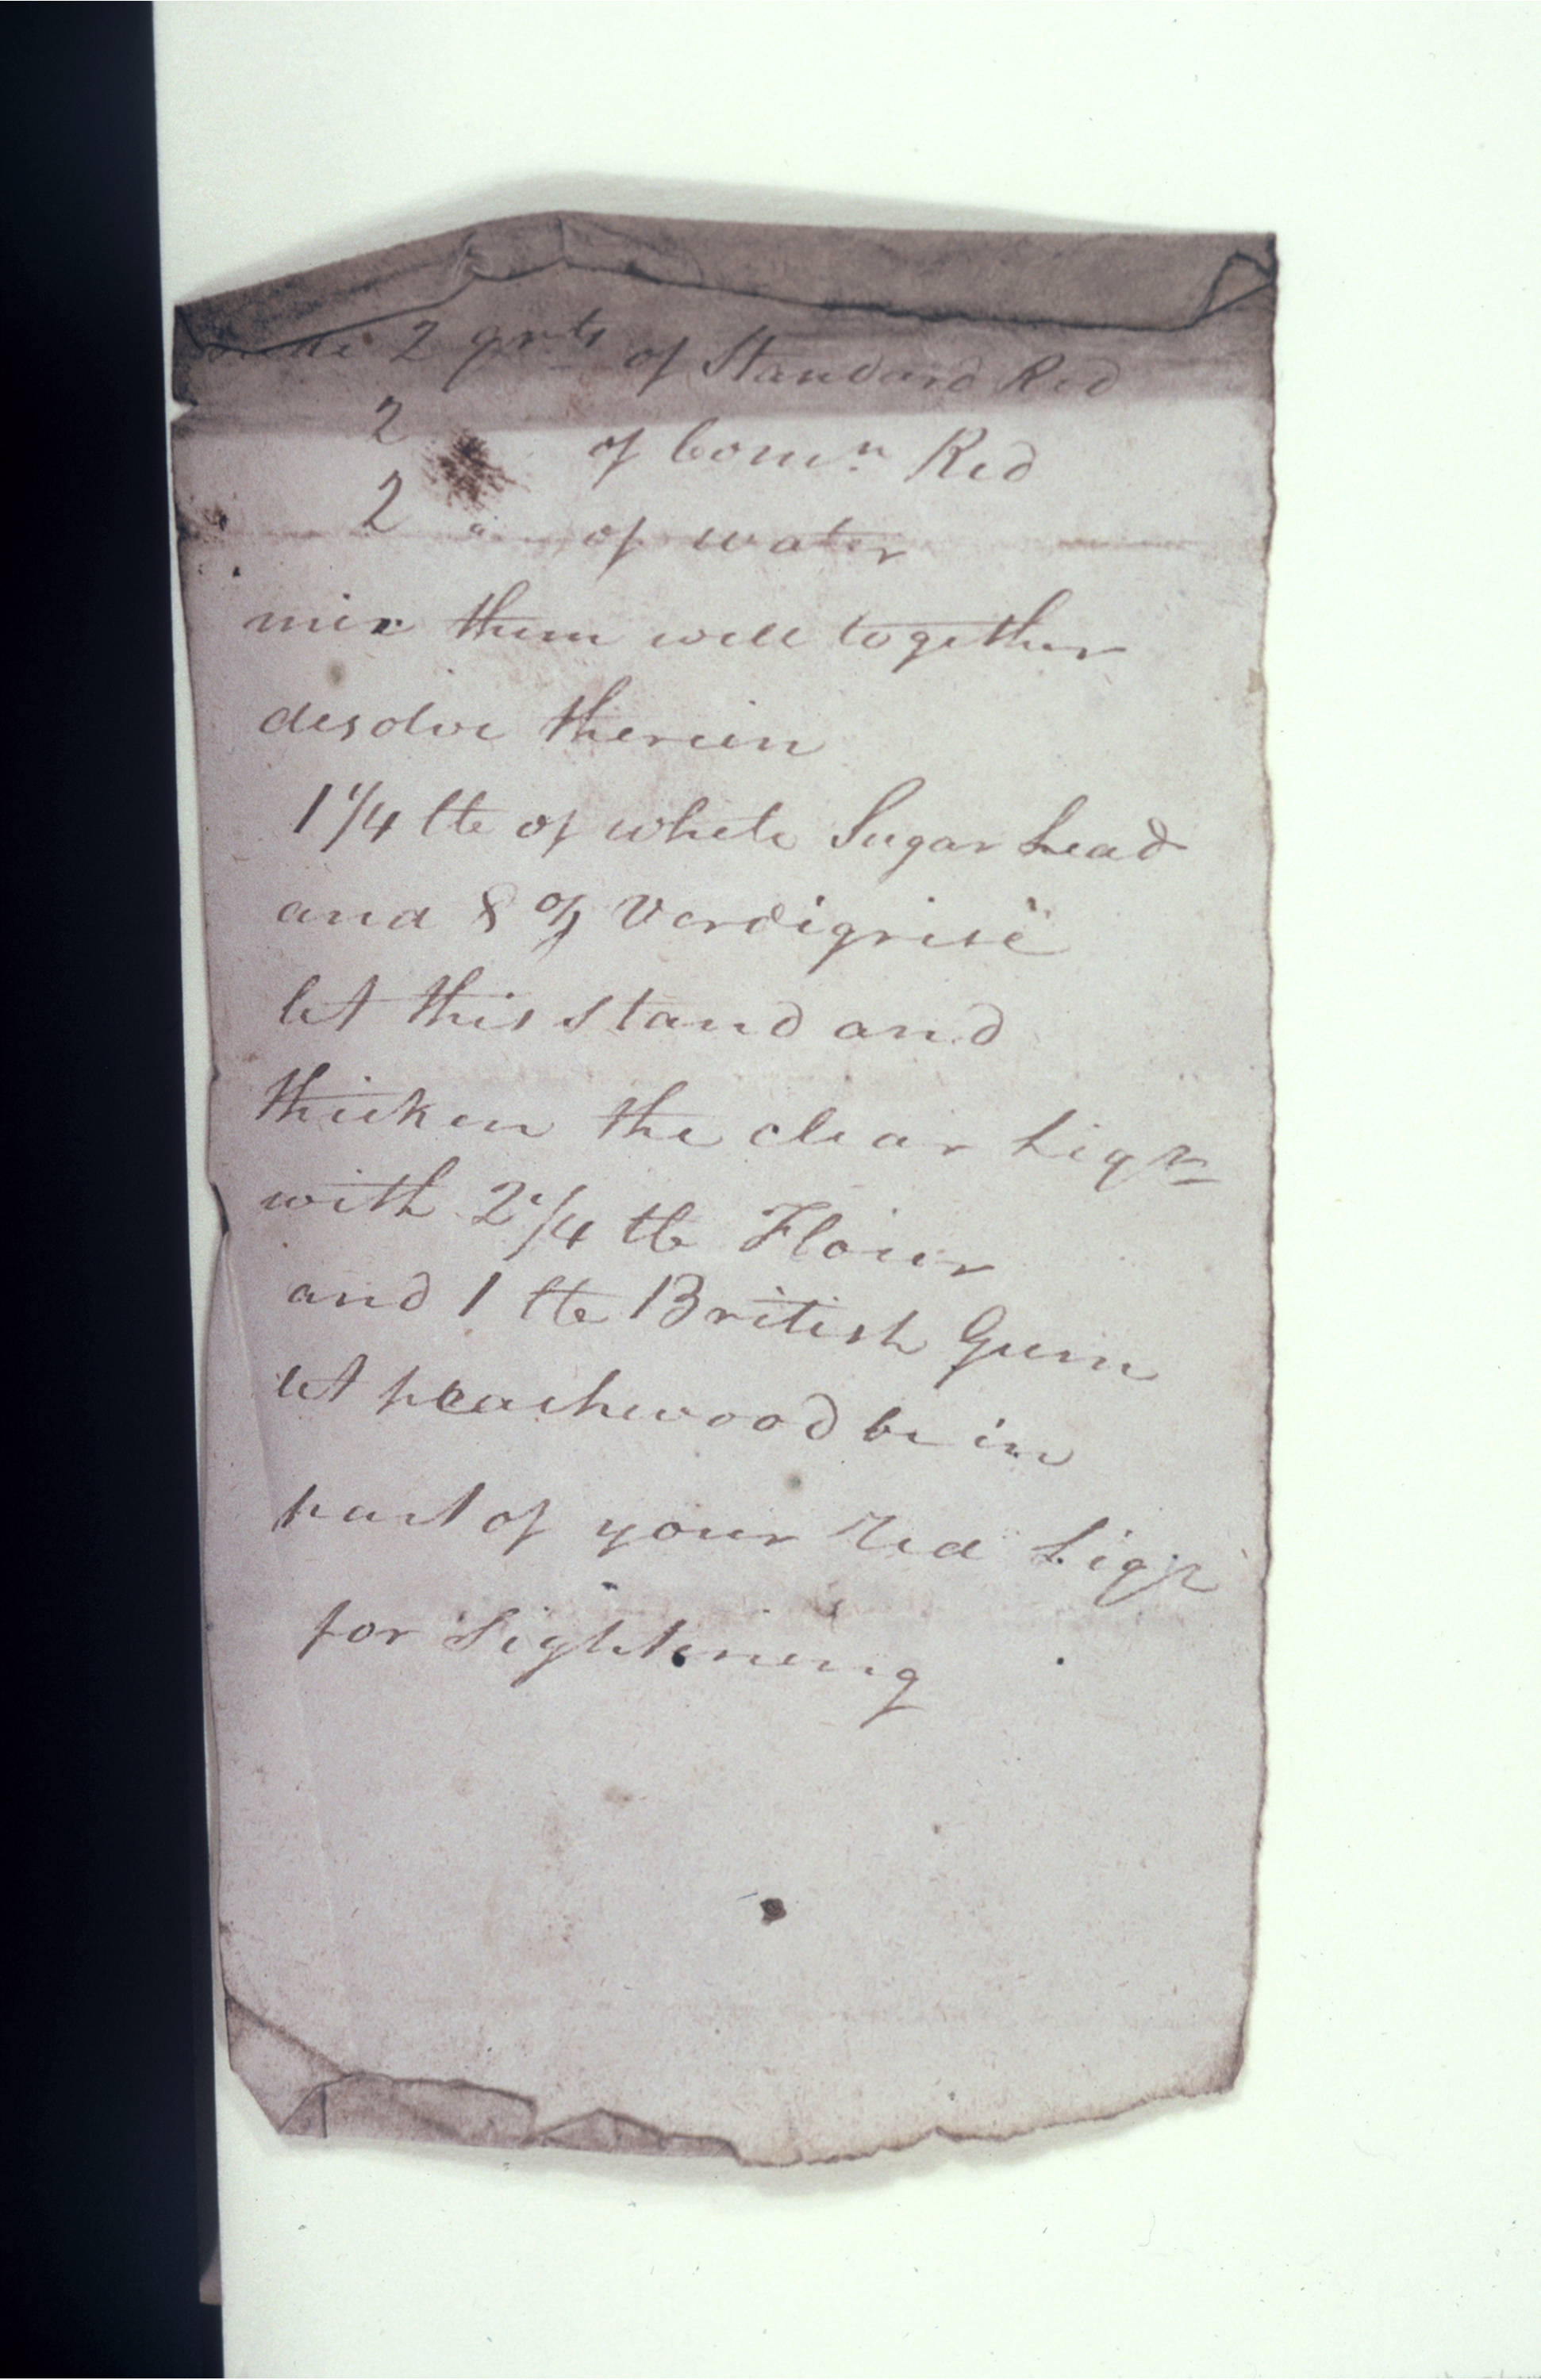 2 qrts of Standard Red
2 of Comn Red
2 " of water
mix them well together
desolve therein
1 1/4 lb of white Sugar Lead
and 8 oz Verdigrise
let this stand and
thicken the clear Liqr
with 2 1/4 lb Flour
and 1 lb British Gum
let peachwood be in
part of your Red Liqr
for Sightening